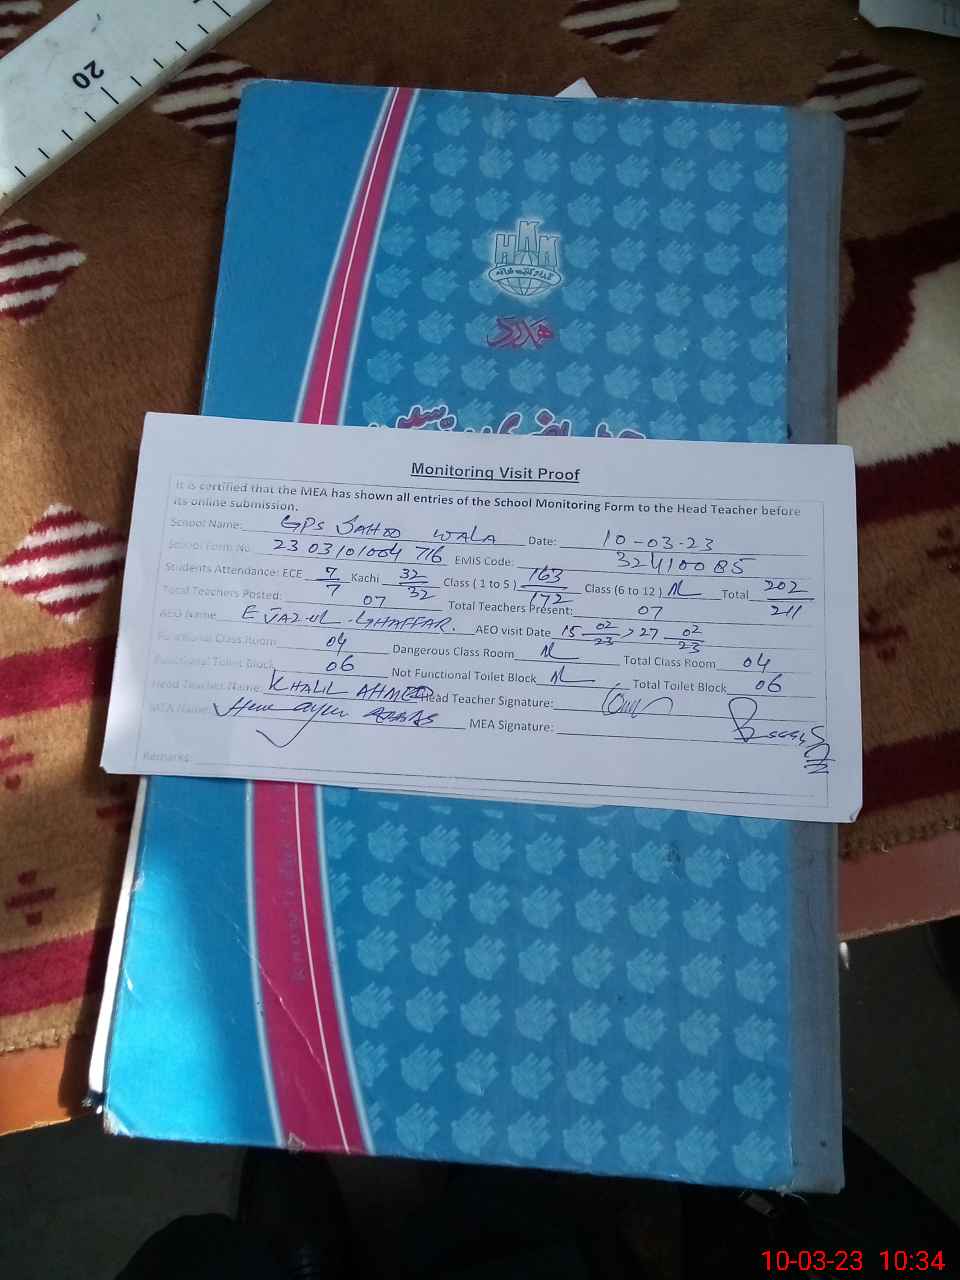 20
ھمدرد
Monitoring Visit Proof
It is certified that the MEA has shown all entries of the School Monitoring Form to the Head Teacher before
its online submission.
School Name: GPS JAHOO WALA Date: 10-03-23
School Form No 23 03101004 716 EMIS Code: 32410085
Students Attendance: ECE 7/7 Kachi 32/32 Class ( 1 to 5 ) 163/172 Class (6 to 12 ) NL Total 202/211
Total Teachers Posted: 07 Total Teachers Present: 07
AEO Name EJAZ-UL-GHAFFAR. AEO visit Date 15 02/23 > 27 02/23
Functional Class Room 04 Dangerous Class Room NL Total Class Room 04
Functional Toilet Block 06 Not Functional Toilet Block NL Total Toilet Block 06
Head Teacher Name: KHALIL AHMED Head Teacher Signature:
MEA Name: MEA Signature:
Remarks:
10-03-23 10:34